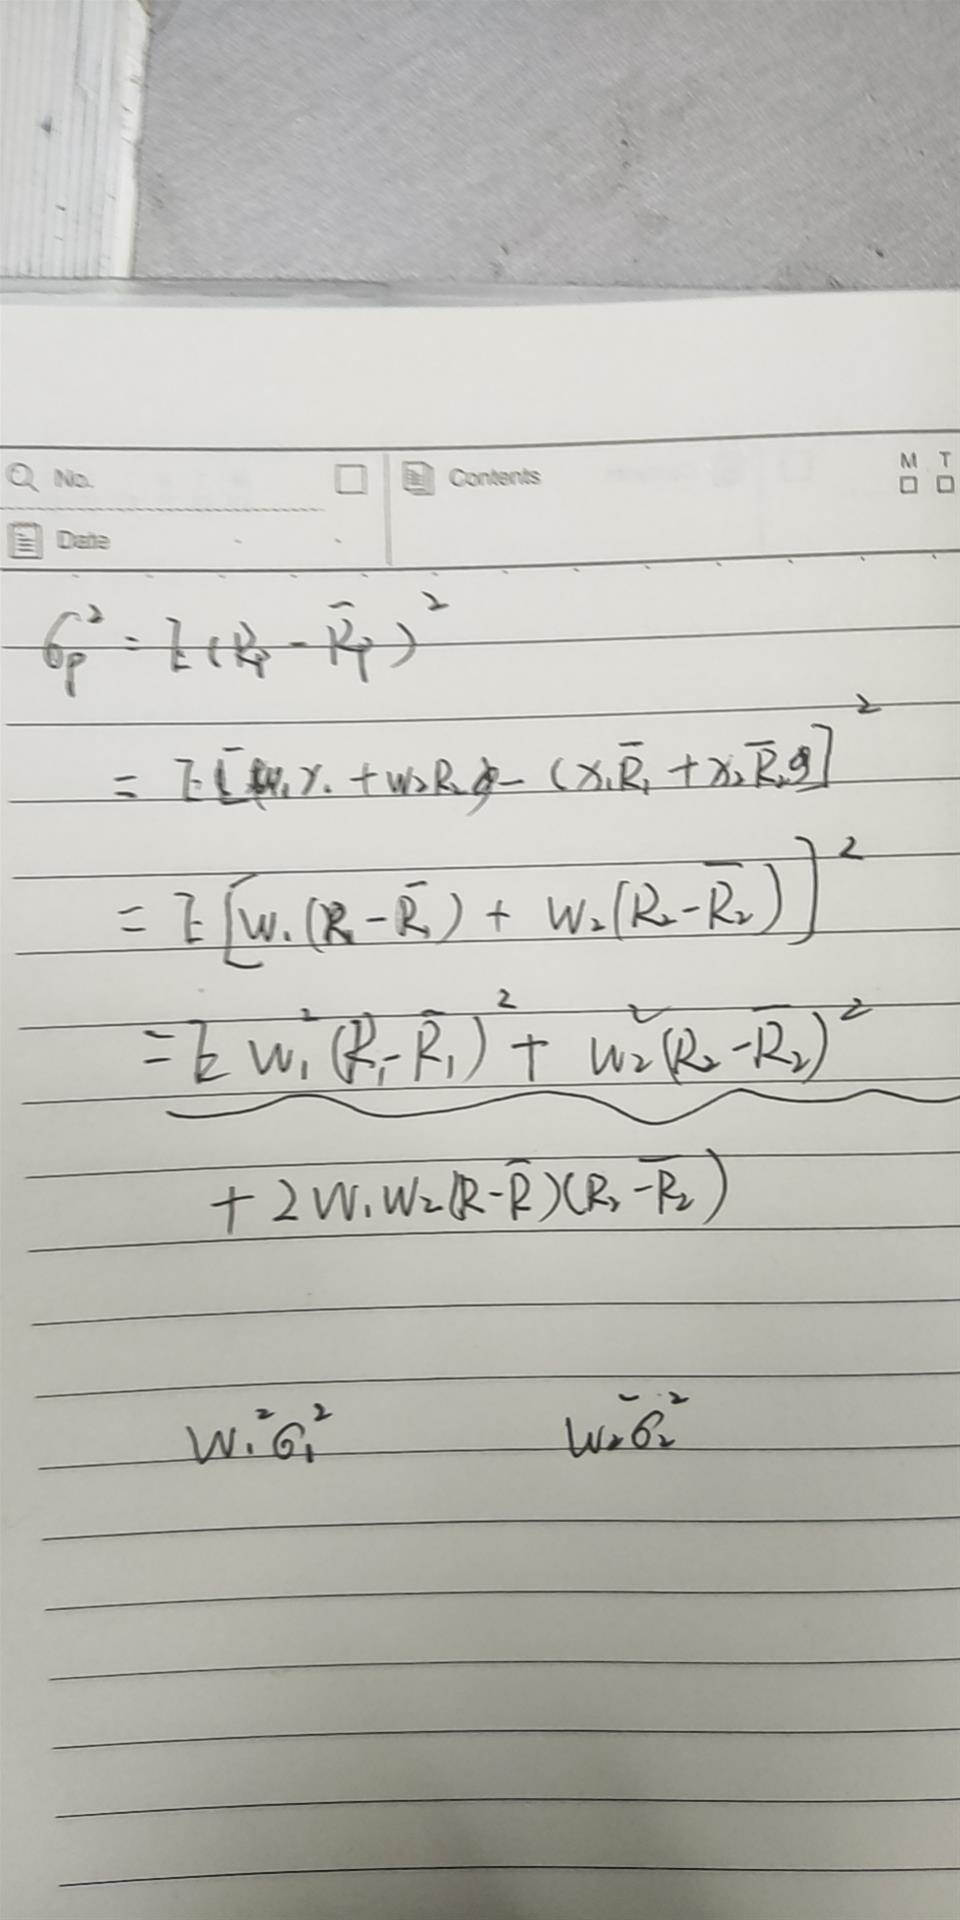 No. Contents M T
Date
σp² = E(Rp - R̄p)²
= E[(w₁x₁ + w₂R₂) - (x₁R̄₁ + x₂R̄₂)]²
= E[W₁(R₁ - R̄₁) + W₂(R₂ - R̄₂)]²
= E W₁²(R₁ - R̄₁)² + W₂²(R₂ - R̄₂)²
+ 2W₁W₂(R - R̄)(R₂ - R̄₂)
W₁²σ₁² W₂²σ₂²